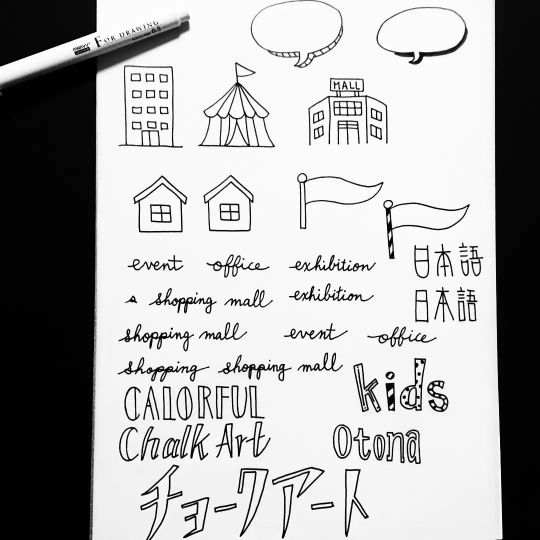 FOR DRAWING
MALL
event office exhibition
日本語
a shopping mall exhibition
日本語
shopping mall event office
shopping shopping mall
CALORFUL
kids
Chalk Art
Otona
チョークアート